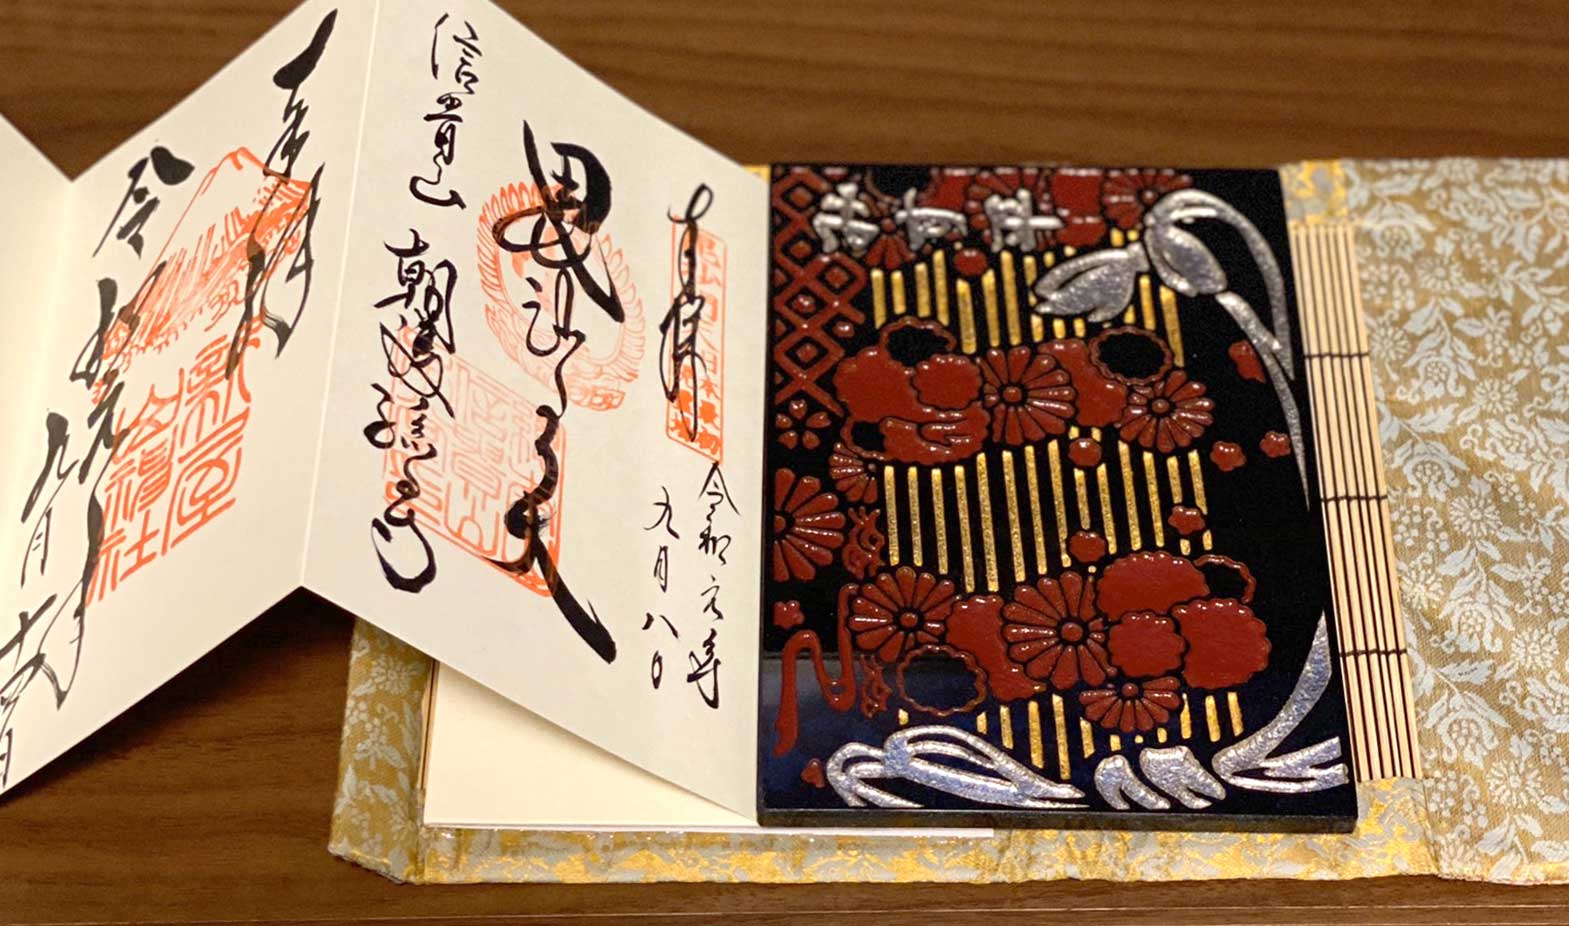 奉拝
令和元年
九月八日
毘沙門天
信貴山 朝護孫子寺
奉拝
新屋
山神社
令和元年
九月十四日